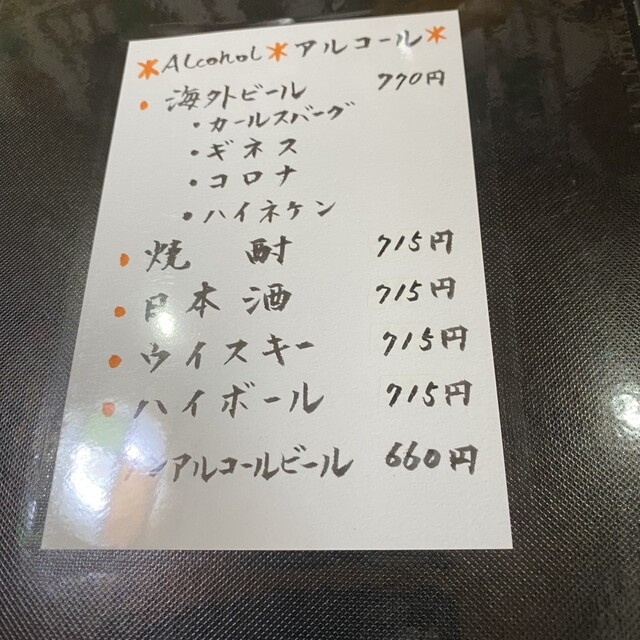 *Alcohol*アルコール*
・海外ビール 770円
・カールスバーグ
・ギネス
・コロナ
・ハイネケン
・焼 酎 715円
・日本酒 715円
・ウイスキー 715円
・ハイボール 715円
ンアルコールビール 660円